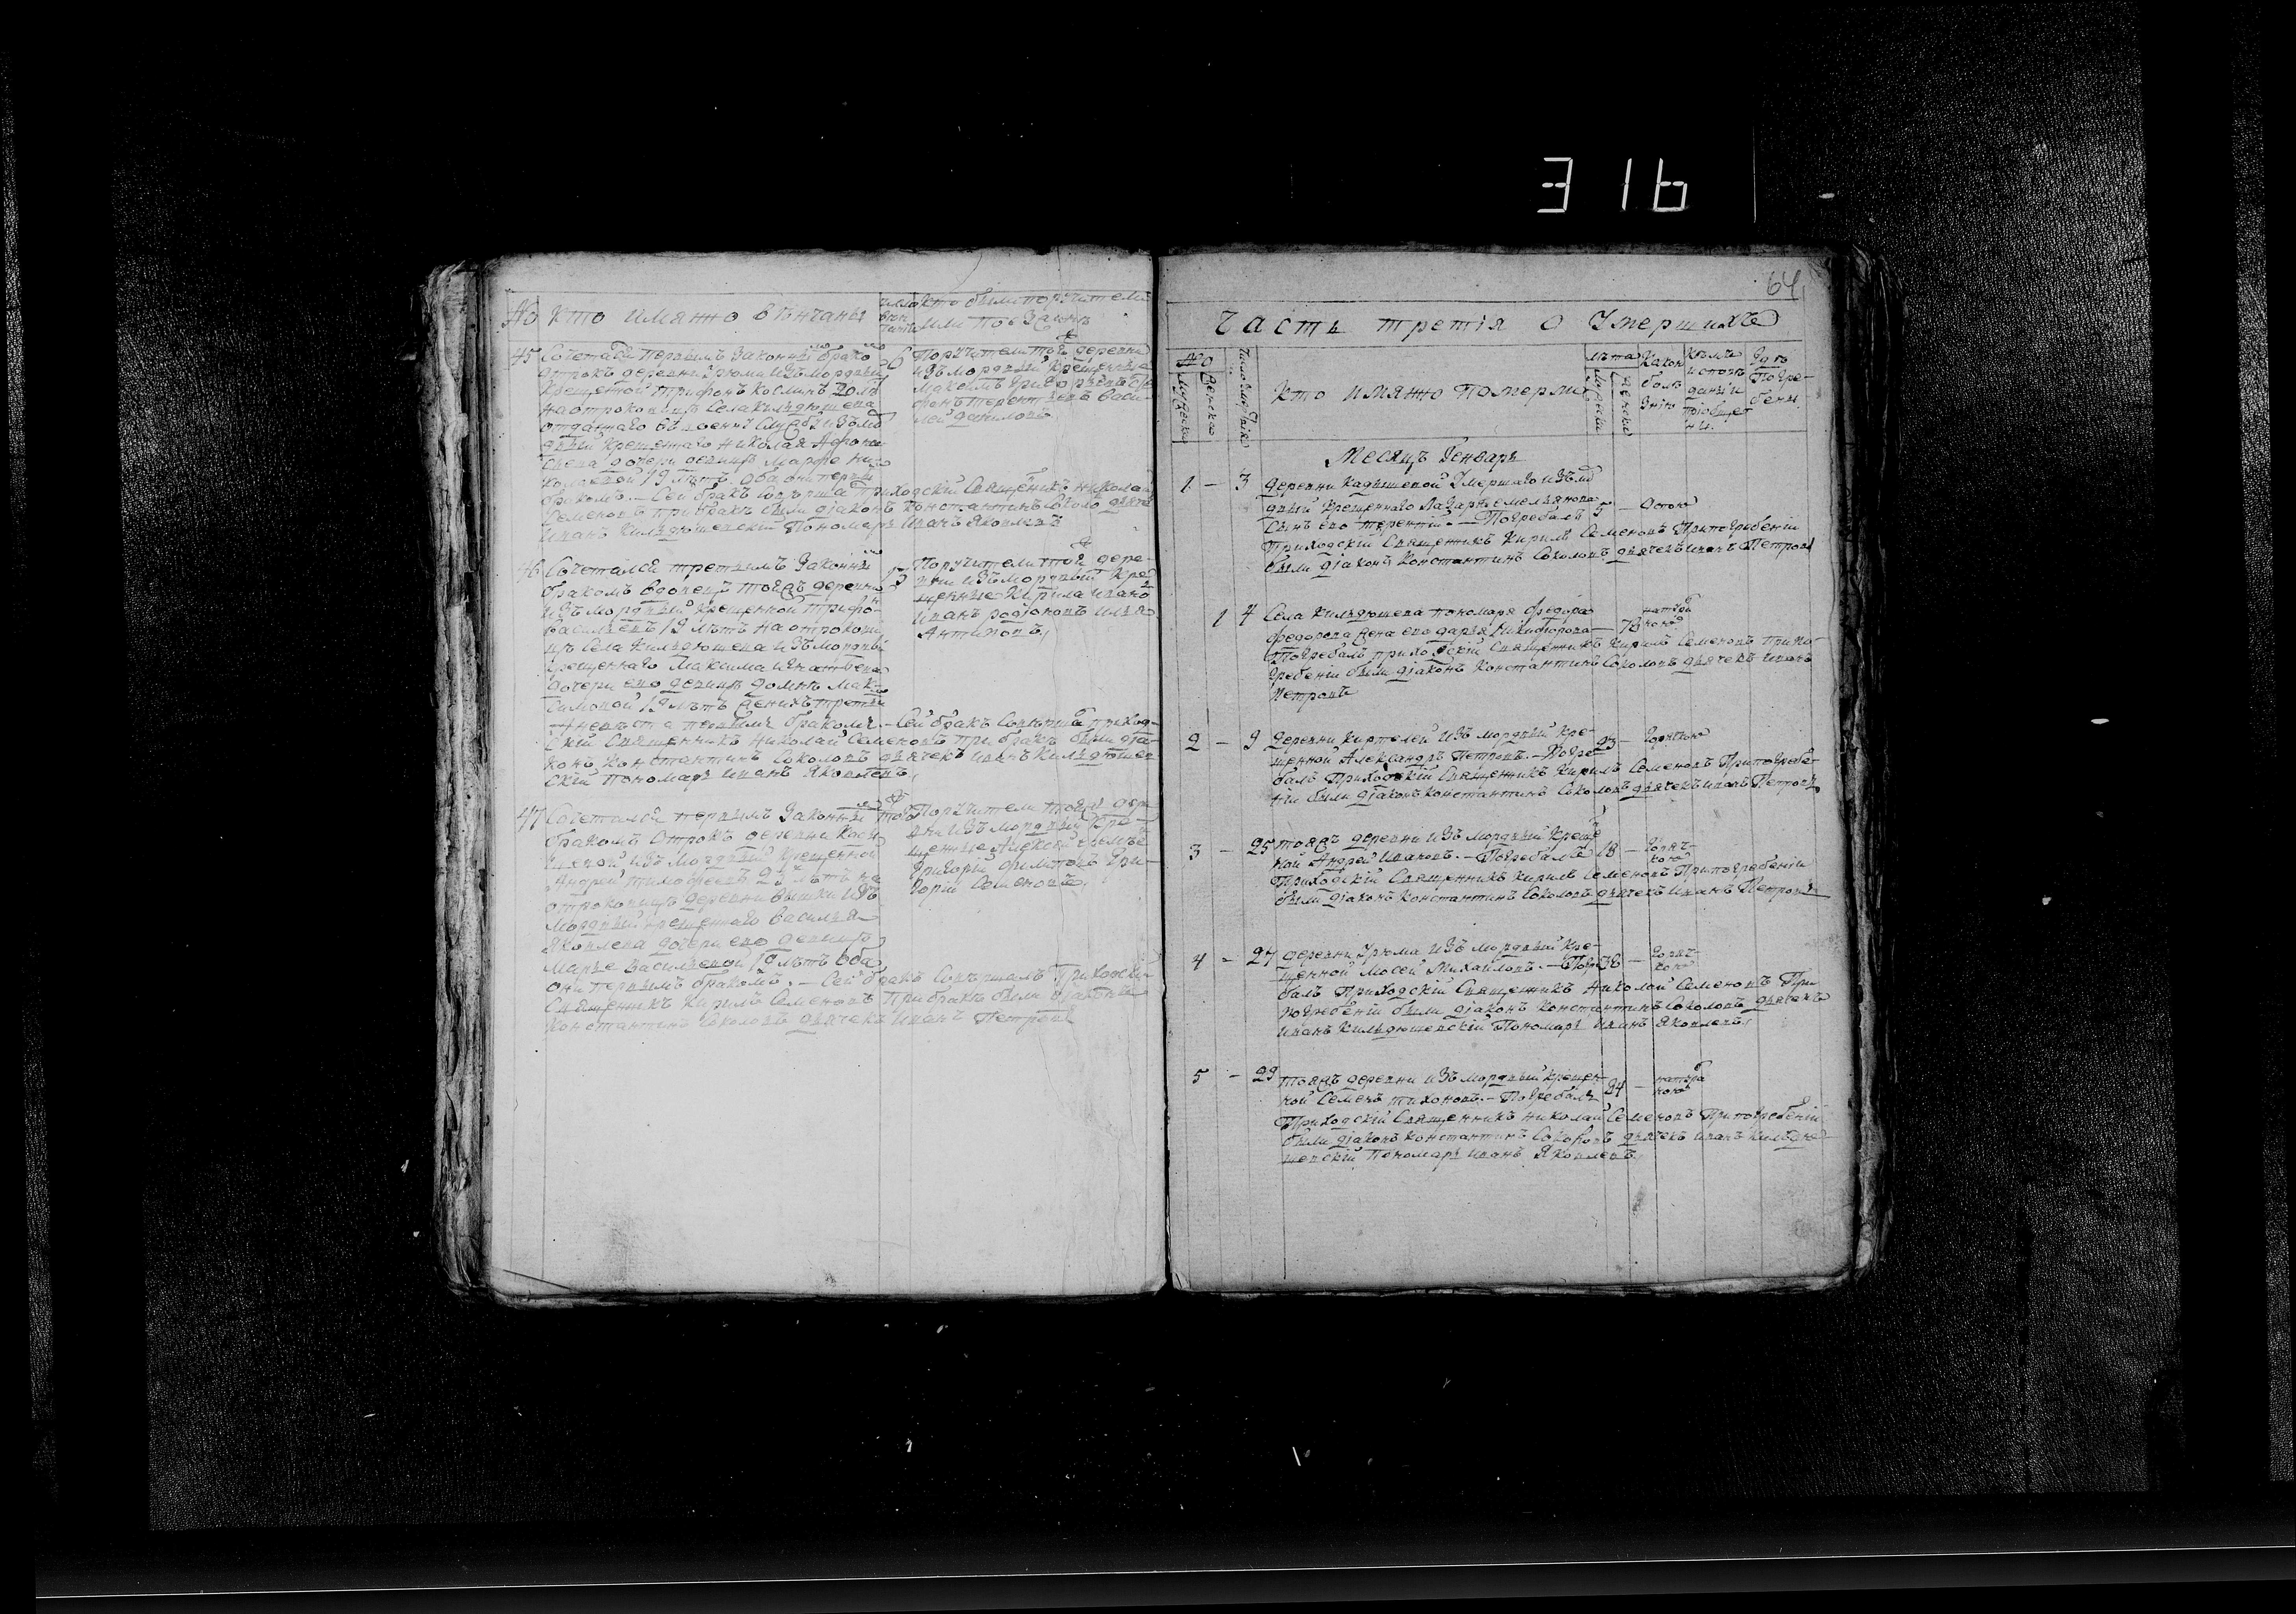 316
No
Кто имянно венчаны
число
вен
чания
кто были поручители
или поезжане
45 Сочетался первымъ законнымъ бракомъ
отрокъ деревни Урюма изъ мордвы
крещеной Трифонъ Косминъ 20 лѣтъ
на отроковицѣ села Кильдюшева
отданнаго въ военну службу изъ мор
двы крещенаго Николая Афонь
сьева дочери девицѣ Марфе Ни
колаевой 19 лѣтъ оба они первы
бракомъ. — Сей бракъ совершалъ приходскій священникъ Николай
Семеновъ при бракѣ были діаконъ Константинъ Соколовъ дьячекъ
Иванъ Кильдюшевскій пономарь Иванъ Яковлевъ
6 Поручители той же деревни
изъ мордвы крещенные
Максимъ Григорьевъ
Терентьевъ Васи
лей Данилов
46 Сочетался третьимъ законны
бракомъ вдовецъ тояжъ деревни
изъ мордвы крещенной Трифо
Васильевъ 19 лѣтъ на отрокови
цѣ села Кильдюшева изъ мордвы
крещеннаго Максима Игнатьева
дочери ево девицѣ Домне Мак
симовой 19 лѣтъ женихъ третьи
а невѣста первымъ бракомъ. — Сей бракъ совершалъ приход
скій священникъ Николай Семеновъ при бракѣ были діа
конъ Константинъ Соколовъ дьячекъ Иванъ Кильдюшев
скій пономарь Иванъ Яковлевъ
Поручители той же дере
вни изъ мордвы кре
щенные Кирила Ивано
Иванъ Родіоновъ Илья
Антиповъ
47 Сочетался первымъ законны
бракомъ отрокъ деревни
изъ мордвы крещенной
Андрей Тимофеевъ 23 лѣтъ на
отроковицѣ деревни изъ
мордвы крещеннаго Василья
Яковлева дочери ево девицѣ
Марье Васильевой лѣтъ оба
они первымъ бракомъ. — Сей бракъ совершалъ приходскі
священникъ Кирилъ Семеновъ при бракѣ были діаконъ
Константинъ Соколовъ дьячекъ Иванъ Петровъ
Поручители тояжъ дере
вни изъ мордвы кре
щенные Алексей
Григорій Филиповъ Гри
горій Семеновъ
64
Часть третія о умершихъ
No
мужеска
женска
число смертія
кто имянно померли
лѣта
мужески
женски
какою
болѣ
знію
кѣмъ
исповѣ
даны и
пріобще
ны
гдѣ
погре
бены
Месяцъ Генварь
1 — 3 Деревни Кадышевой умершаго изъ мо
рдвы крещеннаго Лазаря Емельянова
сынъ ево Терентій — Погребалъ 5 — Оспою
приходскій священникъ Кирилъ Семеновъ при погребеніи
были діаконъ Константинъ Соколовъ дьячекъ Иванъ Петровъ
1 4 Села Кильдюшева пономаря Федора
Федорова жена ево Дарья Никифорова — 78 натура
ною
Погребалъ приходскій священникъ Кирилъ Семеновъ при по
гребеніи были діаконъ Константинъ Соколовъ дьячекъ Иванъ
Петровъ
2 — 9 Деревни Киртелей изъ мордвы кре
щенной Александръ Петровъ. — Погре 23 — Горячкою
балъ приходскій священникъ Кирилъ Семеновъ при погребе
ніи были діаконъ Константинъ Соколовъ дьячекъ Иванъ Петровъ
3 — 25 тояжъ деревни изъ мордвы креще
ной Андрей Ивановъ. — Погребалъ 18 — Горяч
кою
приходскій священникъ Кирилъ Семеновъ при погребеніи
были діаконъ Константинъ Соколовъ дьячекъ Иванъ Петровъ
4 — 27 деревни Урюма изъ мордвы кре
щенной Мосей Михайловъ. — Погре 38 — Горяч
кою
балъ приходскій священникъ Николай Семеновъ при
погребеніи были діаконъ Константинъ Соколовъ дьячекъ
Иванъ Кильдюшевскій пономарь Иванъ Яковлевъ
5 — 29 тояжъ деревни изъ мордвы крещен
ной Семенъ Тихоновъ. — Погребалъ 94 — натура
ною
приходскій священникъ Николай Семеновъ при погребеніи
были діаконъ Константинъ Соколовъ дьячекъ Иванъ Кильдю
шевскій пономарь Иванъ Яковлевъ